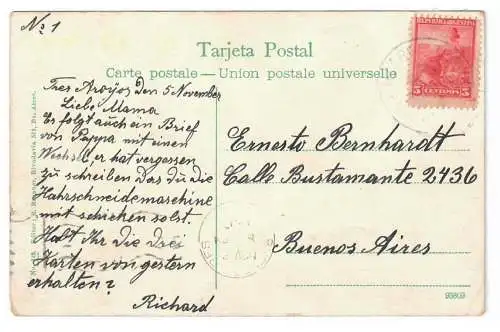 No 1
Tarjeta Postal
Carte postale — Union postale universelle
REPUBLICA ARGENTINA
5 CENTAVOS 5
Tres Aroyos den 5 November
Liebe Mama
Es folgt auch ein Brief
von Pappa mit einen
Wechsel, er hat vergessen
zu schreiben Das du die
Hahrschneidemaschiene
mit schicken solst.
Habt Ihr die drei
Karten von gestern
erhalten?
Richard
Ernesto Bernhardt
Calle Bustamante 2436
Buenos Aires
Rivadavia
Bs. Aires